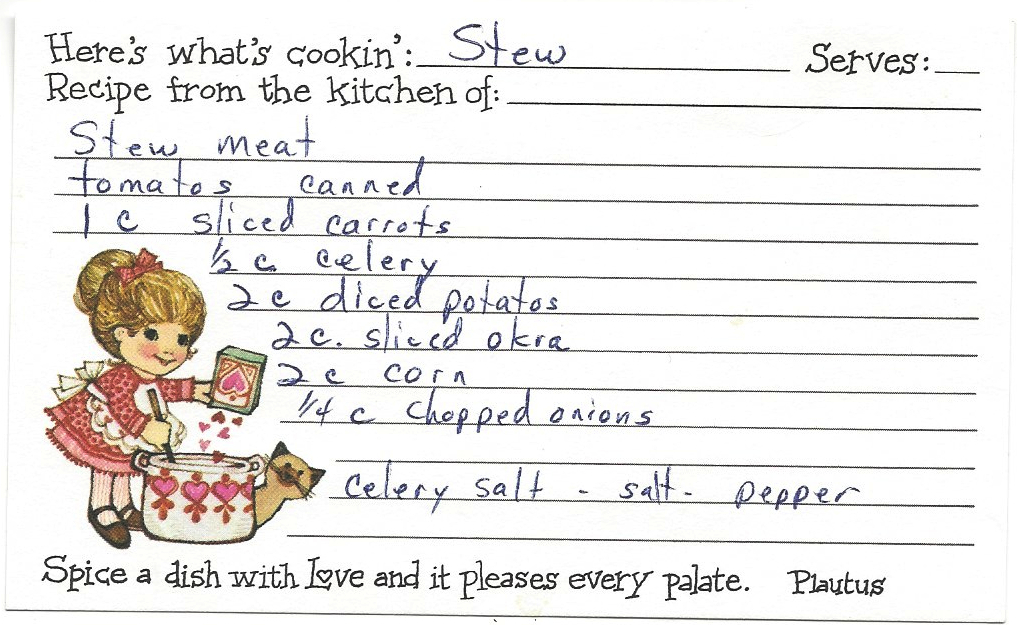 Here's what's cookin': Stew Serves:
Recipe from the kitchen of:
Stew meat
tomatos canned
1 c sliced carrots
1/2 c. celery
2 c diced potatos
2 c. sliced okra
2 c corn
1/4 c chopped onions
celery salt - salt - pepper
Spice a dish with Love and it pleases every palate. Plautus